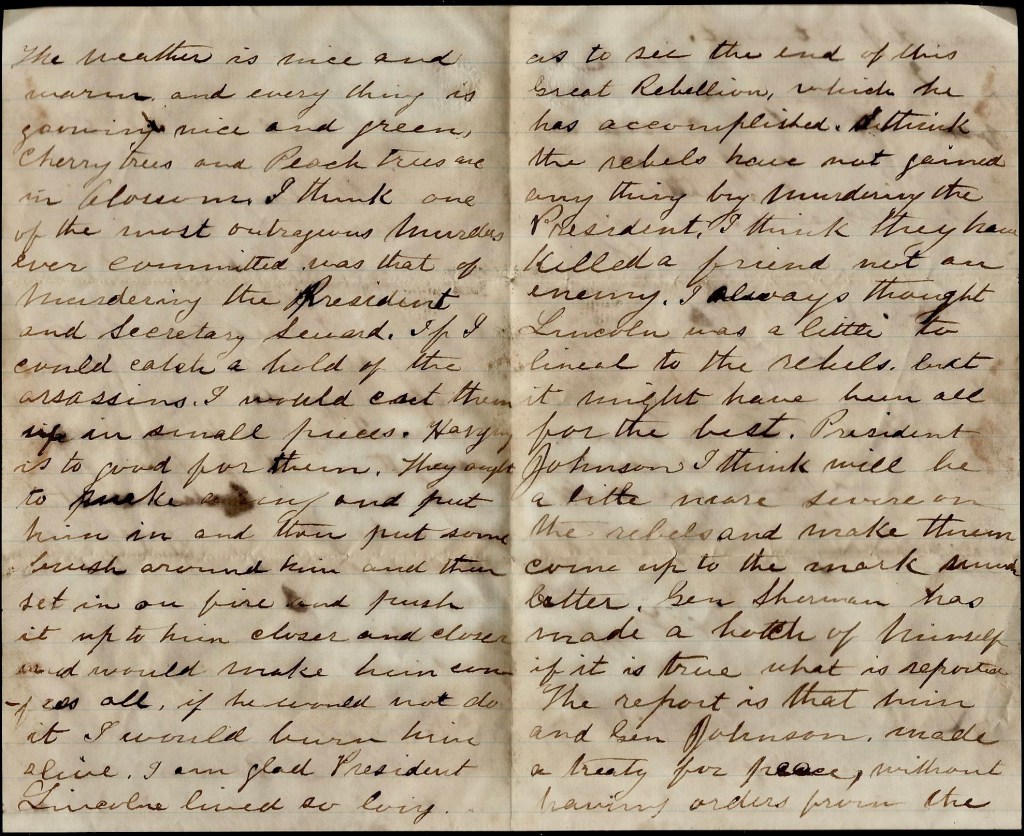 The weather is nice and
warm. and every thing is
growing nice and green,
Cherry trees and Peach trees are
in blossom. I think one
of the most outrageous Murders
ever committed was that of
Murdering the President
and Secretary Seward. If I
could catch a hold of the
assassins. I would cut them
up in small pieces. Hanging
is to good for them. They ought
to make a and put
him in and then put some
brush around him and then
set in on fire and push
it up to him closer and closer
and would make him con
-fess all, if he would not do
it I would burn him
alive. I am glad President
Lincolne lived so long.
as to see the end of this
Great Rebellion, which he
has accomplished. I think
the rebels have not gained
any thing by Murdering the
President. I think they have
Killed a friend not an
enemy. I always thought
Lincoln was a little to
lineal to the rebels. but
it might have been all
for the best. President
Johnson I think will be
a little more severe on
the rebels and make them
come up to the mark much
better. Gen Sherman has
made a botch of himself
if it is true what is reported
The report is that him
and Gen Johnson. made
a treaty for peace, without
having orders from the